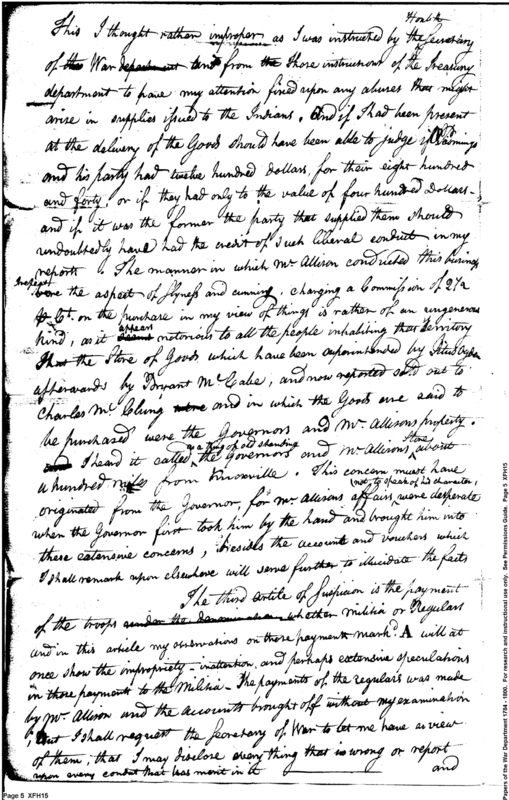 Honble
This I thought rather improper as I was instructed by the Secretary
of the War department and from the those instructions of the Treasury
department to have my attention fixed upon any abuses that might
arise in supplies issued to the Indians. And if I had been present
at the delivery of the Goods should have been able to judge if
and his party had twelve hundred dollars for their eight hundred
and forty, or if they had only to the value of four hundred Dollars
and if it was the former the party that supplied them should
undoubtedly have had the credit of such liberal conduct in my
reports. The manner in which Mr Allison conducted this business
were the aspect of slyness and cunning, charging a Commission of
on the purchase in my view of things is rather of an ungenerous
appears
kind, as it seems notorious to all the people inhabiting that territory
That the Store of Goods which have been superintended by
afterwards by Bryant McCabe, and now reported sold out to
Charles McClung were and in which the Goods are said to
be purchased were the Governors and Mr Allisons property.
as a thing of old standing Store
I heard it called the Governors and Mr Allisons about
a hundred miles from Knoxville. This concern must have
(not to speak of his character,
originated from the Governor, for Mr Allisons affairs were desperate
when the Governor first took him by the hand and brought him into
these extensive concerns, besides the account and vouchers which
I shall remark upon elsewhere will serve further to illucidate the facts
The third article of Suspicion is the payment
of the troops under the denomination whether militia or Regulars
and in this article my observations on those payments markd. A will at
once show the impropriety - inattention, and perhaps extensive speculations
in those payments to the Militia - The payments of the regulars was made
by Mr Allison and the accounts brought off without my examination
but I shall request the Secretary of War to let me have a view
of them, that I may disclose every thing that is wrong or report
upon every conduct that has merit in it
and
Page 5 XFH15
Papers of the War Department 1784 - 1800. For research and instructional use only. See Permissions Guide. Page 5 XFH15